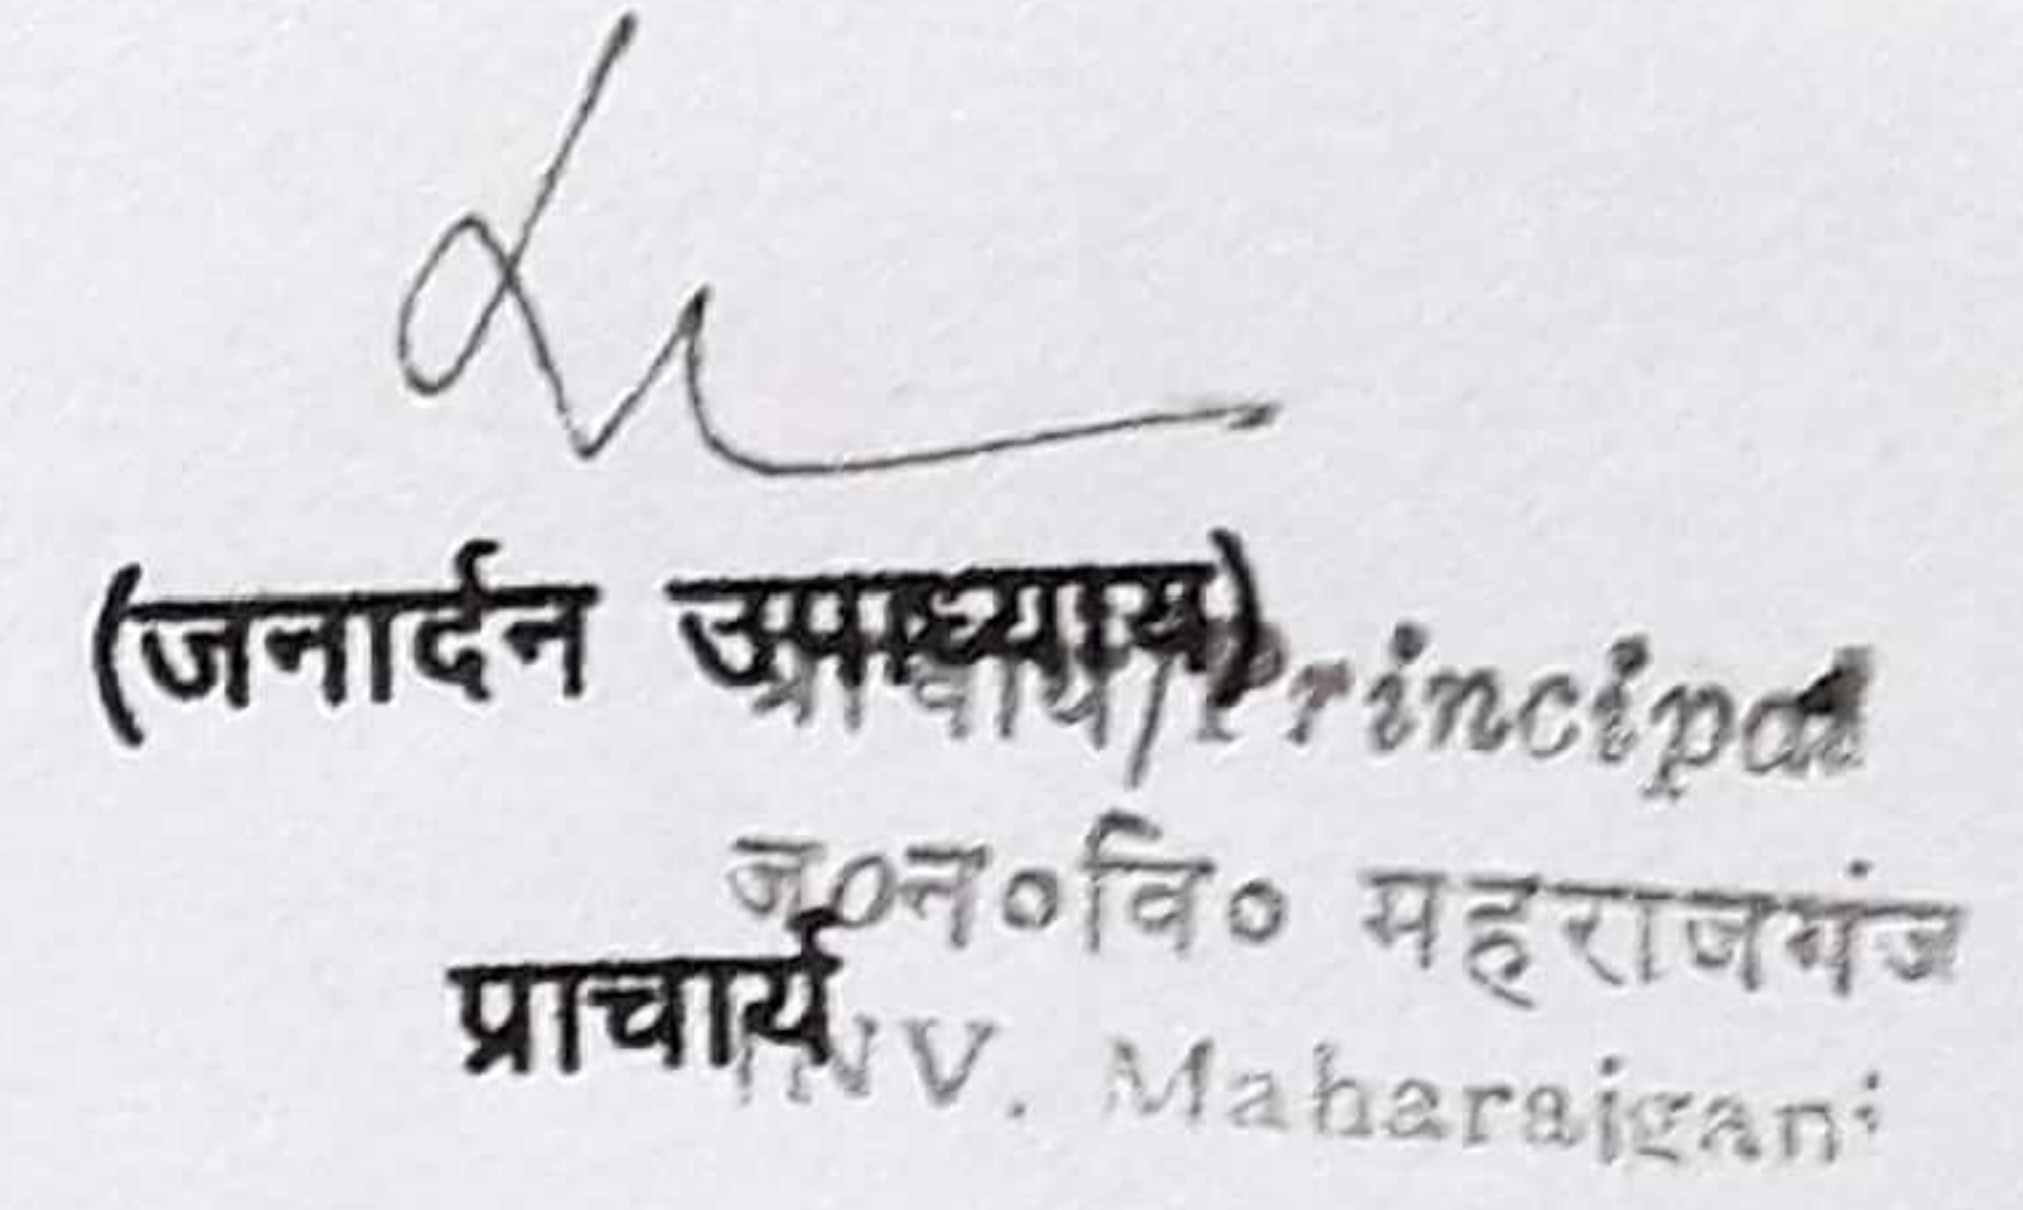 (जनार्दन उपाध्याय)
प्राचार्य/Principal
ज०न०वि० महराजगंज
प्राचार्य
JNV. Maharajganj